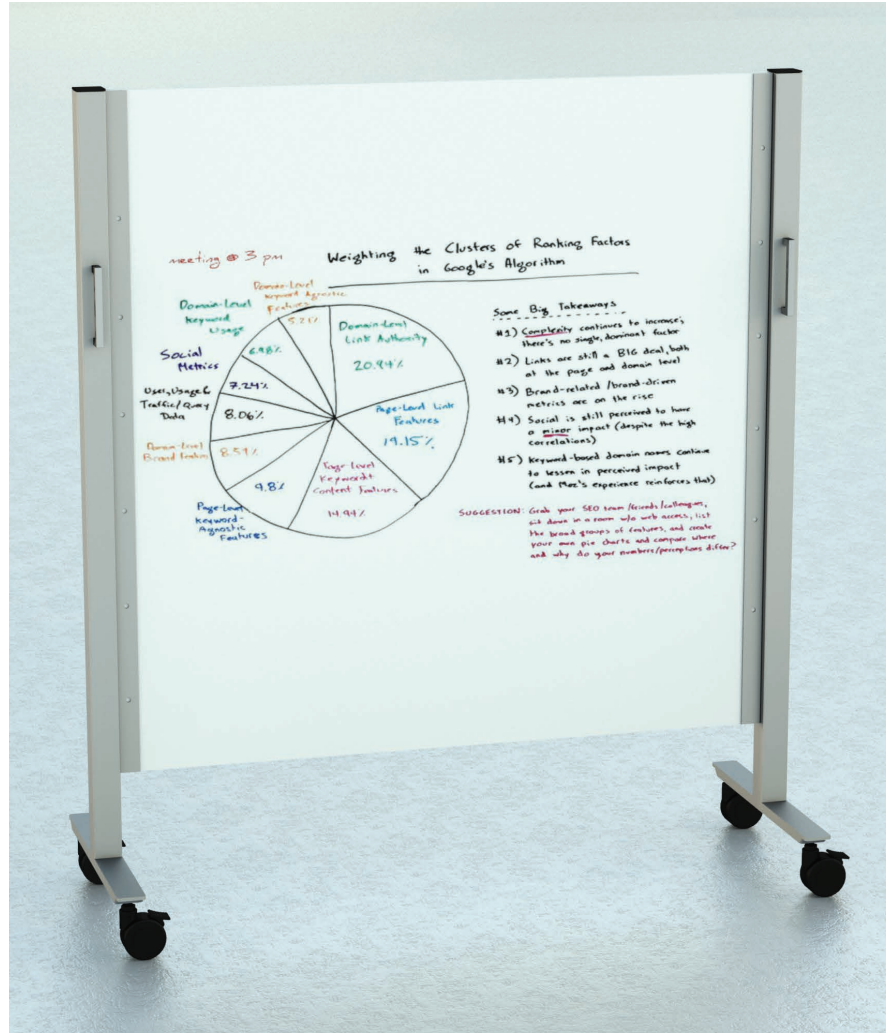 meeting @ 3 pm
Weighting the Clusters of Ranking Factors
in Google's Algorithm
Domain-Level
Keyword Agnostic
Features
5.21%
Domain-Level
Keyword
Usage
6.98%
Social
Metrics
7.24%
User, Usage &
Traffic/Query
Data
8.06%
Domain-Level
Brand Features
8.59%
Page-Level
Keyword-
Agnostic
Features
9.8%
Page-Level
Keyword+
Content Features
14.94%
Page-Level Link
Features
19.15%
Domain-Level
Link Authority
20.94%
Some Big Takeaways
#1) Complexity continues to increase;
there's no single, dominant factor
#2) Links are still a BIG deal, both
at the page and domain level
#3) Brand-related /brand-driven
metrics are on the rise
#4) Social is still perceived to have
a minor impact (despite the high
correlations)
#5) Keyword-based domain names continue
to lessen in perceived impact
(and Moz's experience reinforces that)
SUGGESTION: Grab your SEO team/friends/colleagues,
sit down in a room w/o web access, list
the broad groups of features, and create
your own pie charts and compare where
and why do your numbers/perceptions differ?